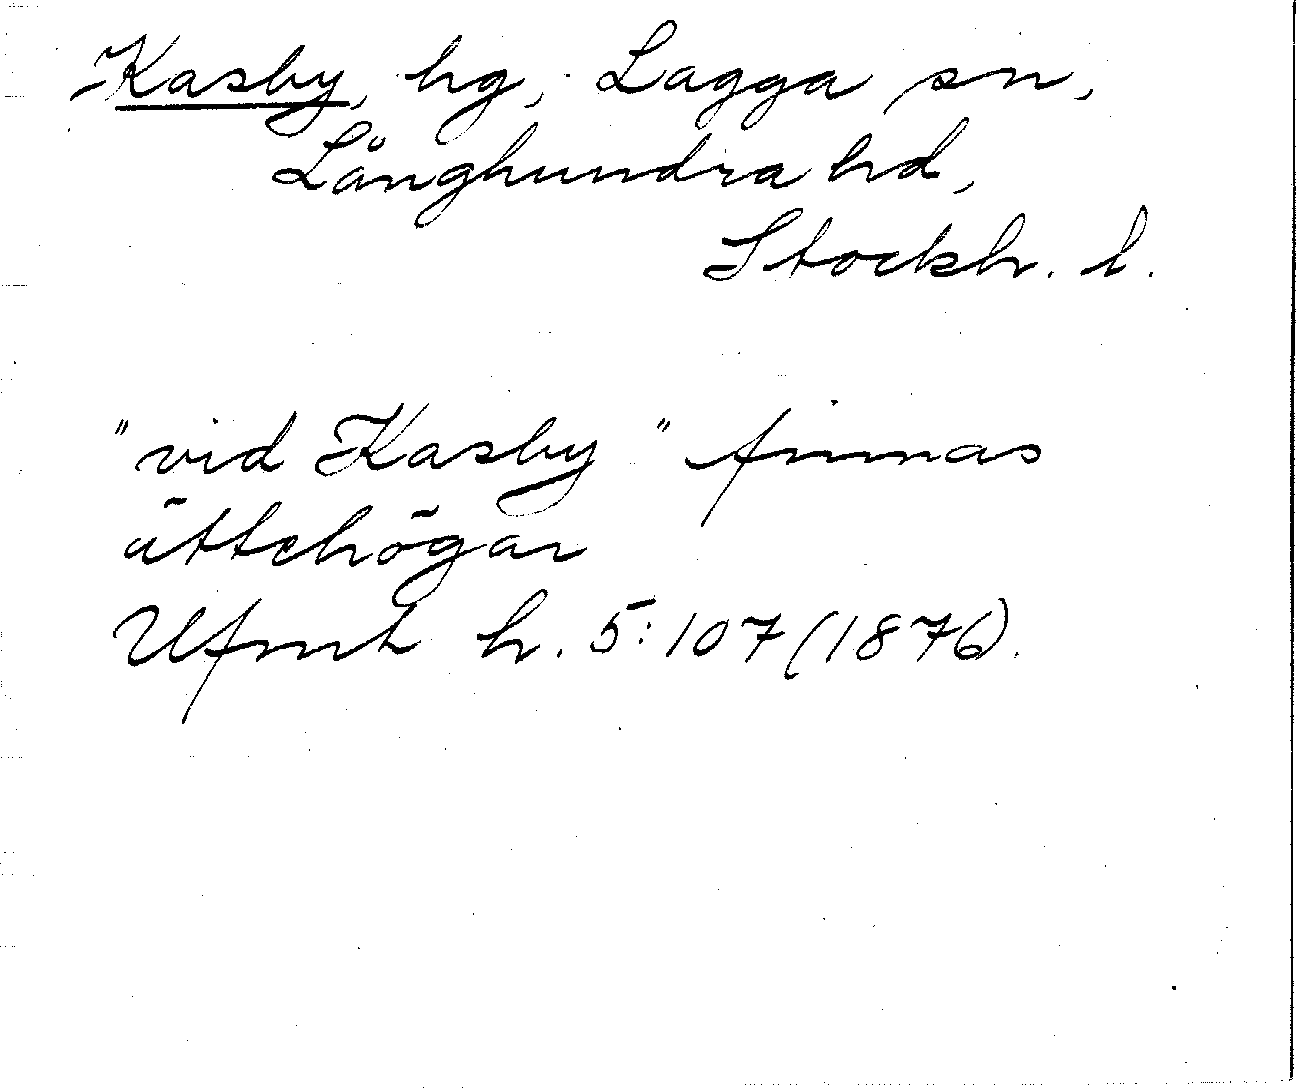 Kasby, hg, Lagga sn,
Långhundra hd,
Stockh. l.
"vid Kasby" finnas
ättehögar
Ufmt h. 5:107 (1876).